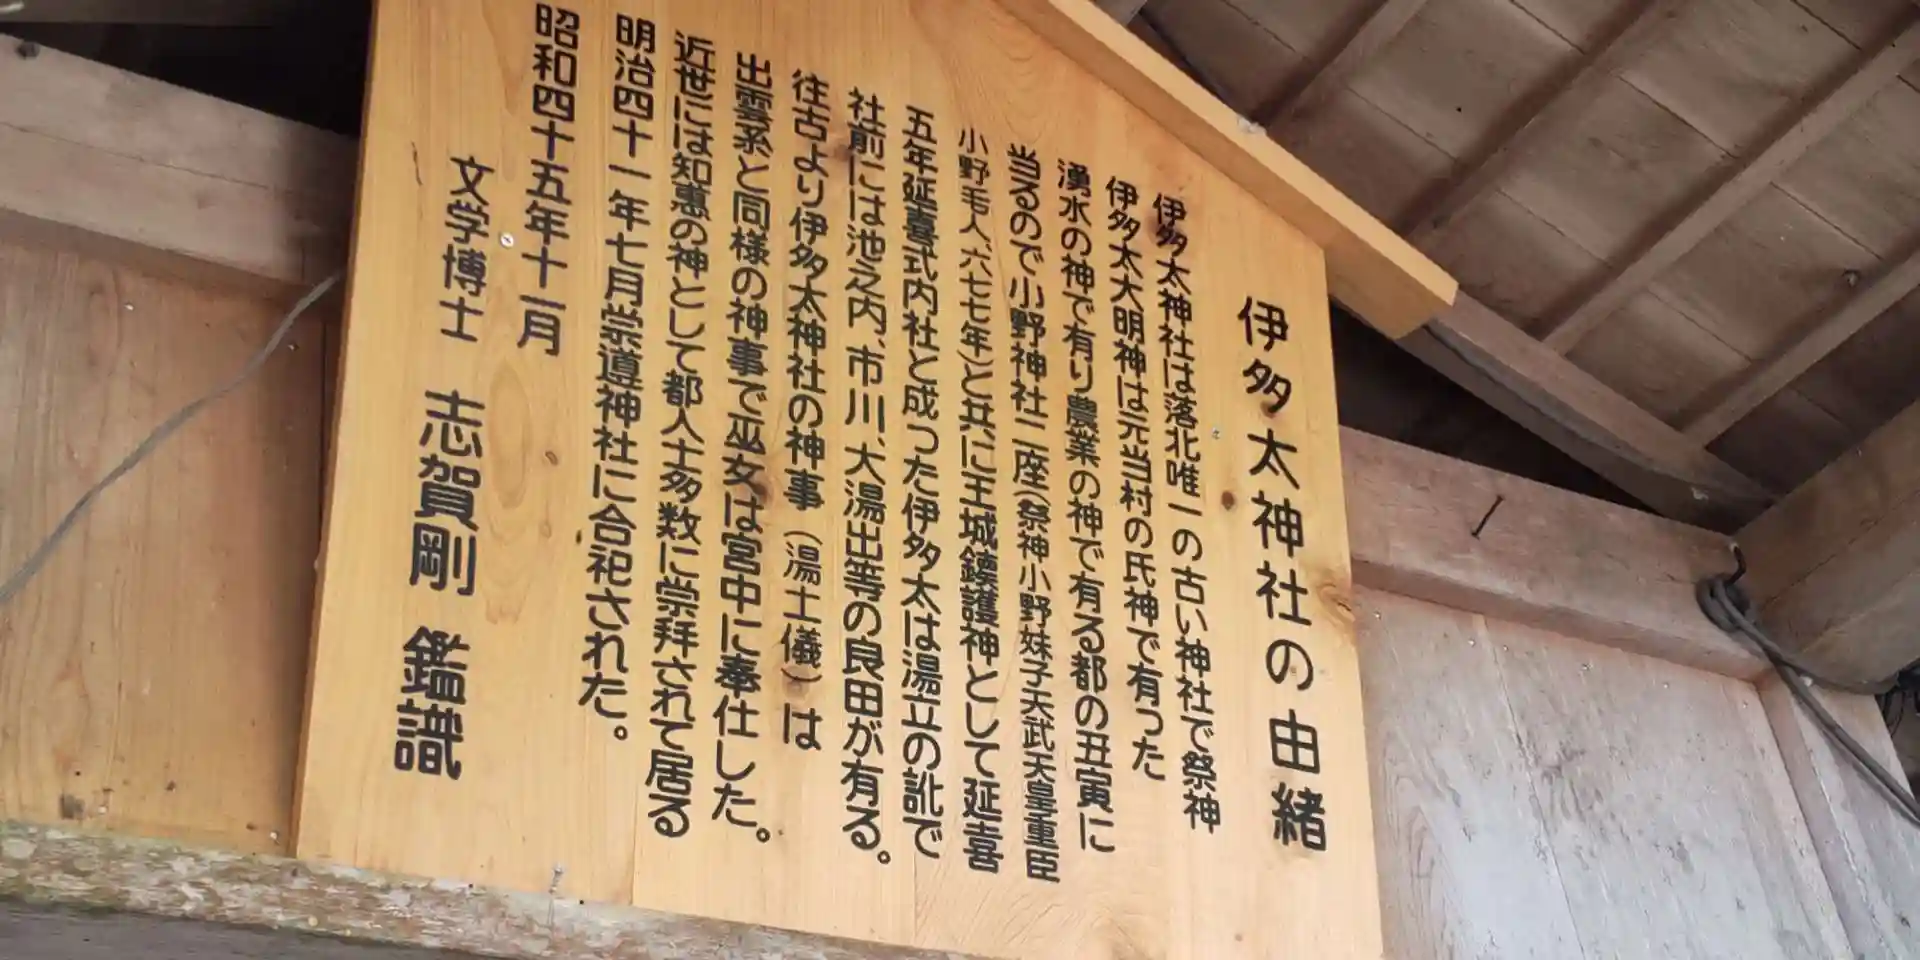 伊多太神社の由緒
伊多太神社は落北唯一の古い神社で祭神
伊多太大明神は元当村の氏神で有った
湧水の神で有り農業の神で有る都の丑寅に
当るので小野神社二座(祭神小野妹子天武天皇重臣
小野毛人、六七七年)と共に王城鎮護神として延喜
五年延喜式内社と成った伊多太は湯立の訛で
社前には池之内、市川、大湯出等の良田が有る。
往古より伊多太神社の神事(湯土儀)は
出雲系と同様の神事で巫女は宮中に奉仕した。
近世には知恵の神として都人士多数に崇拜されて居る
明治四十一年七月崇道神社に合祀された。
昭和四十五年十一月
文学博士 志賀剛 鑑識